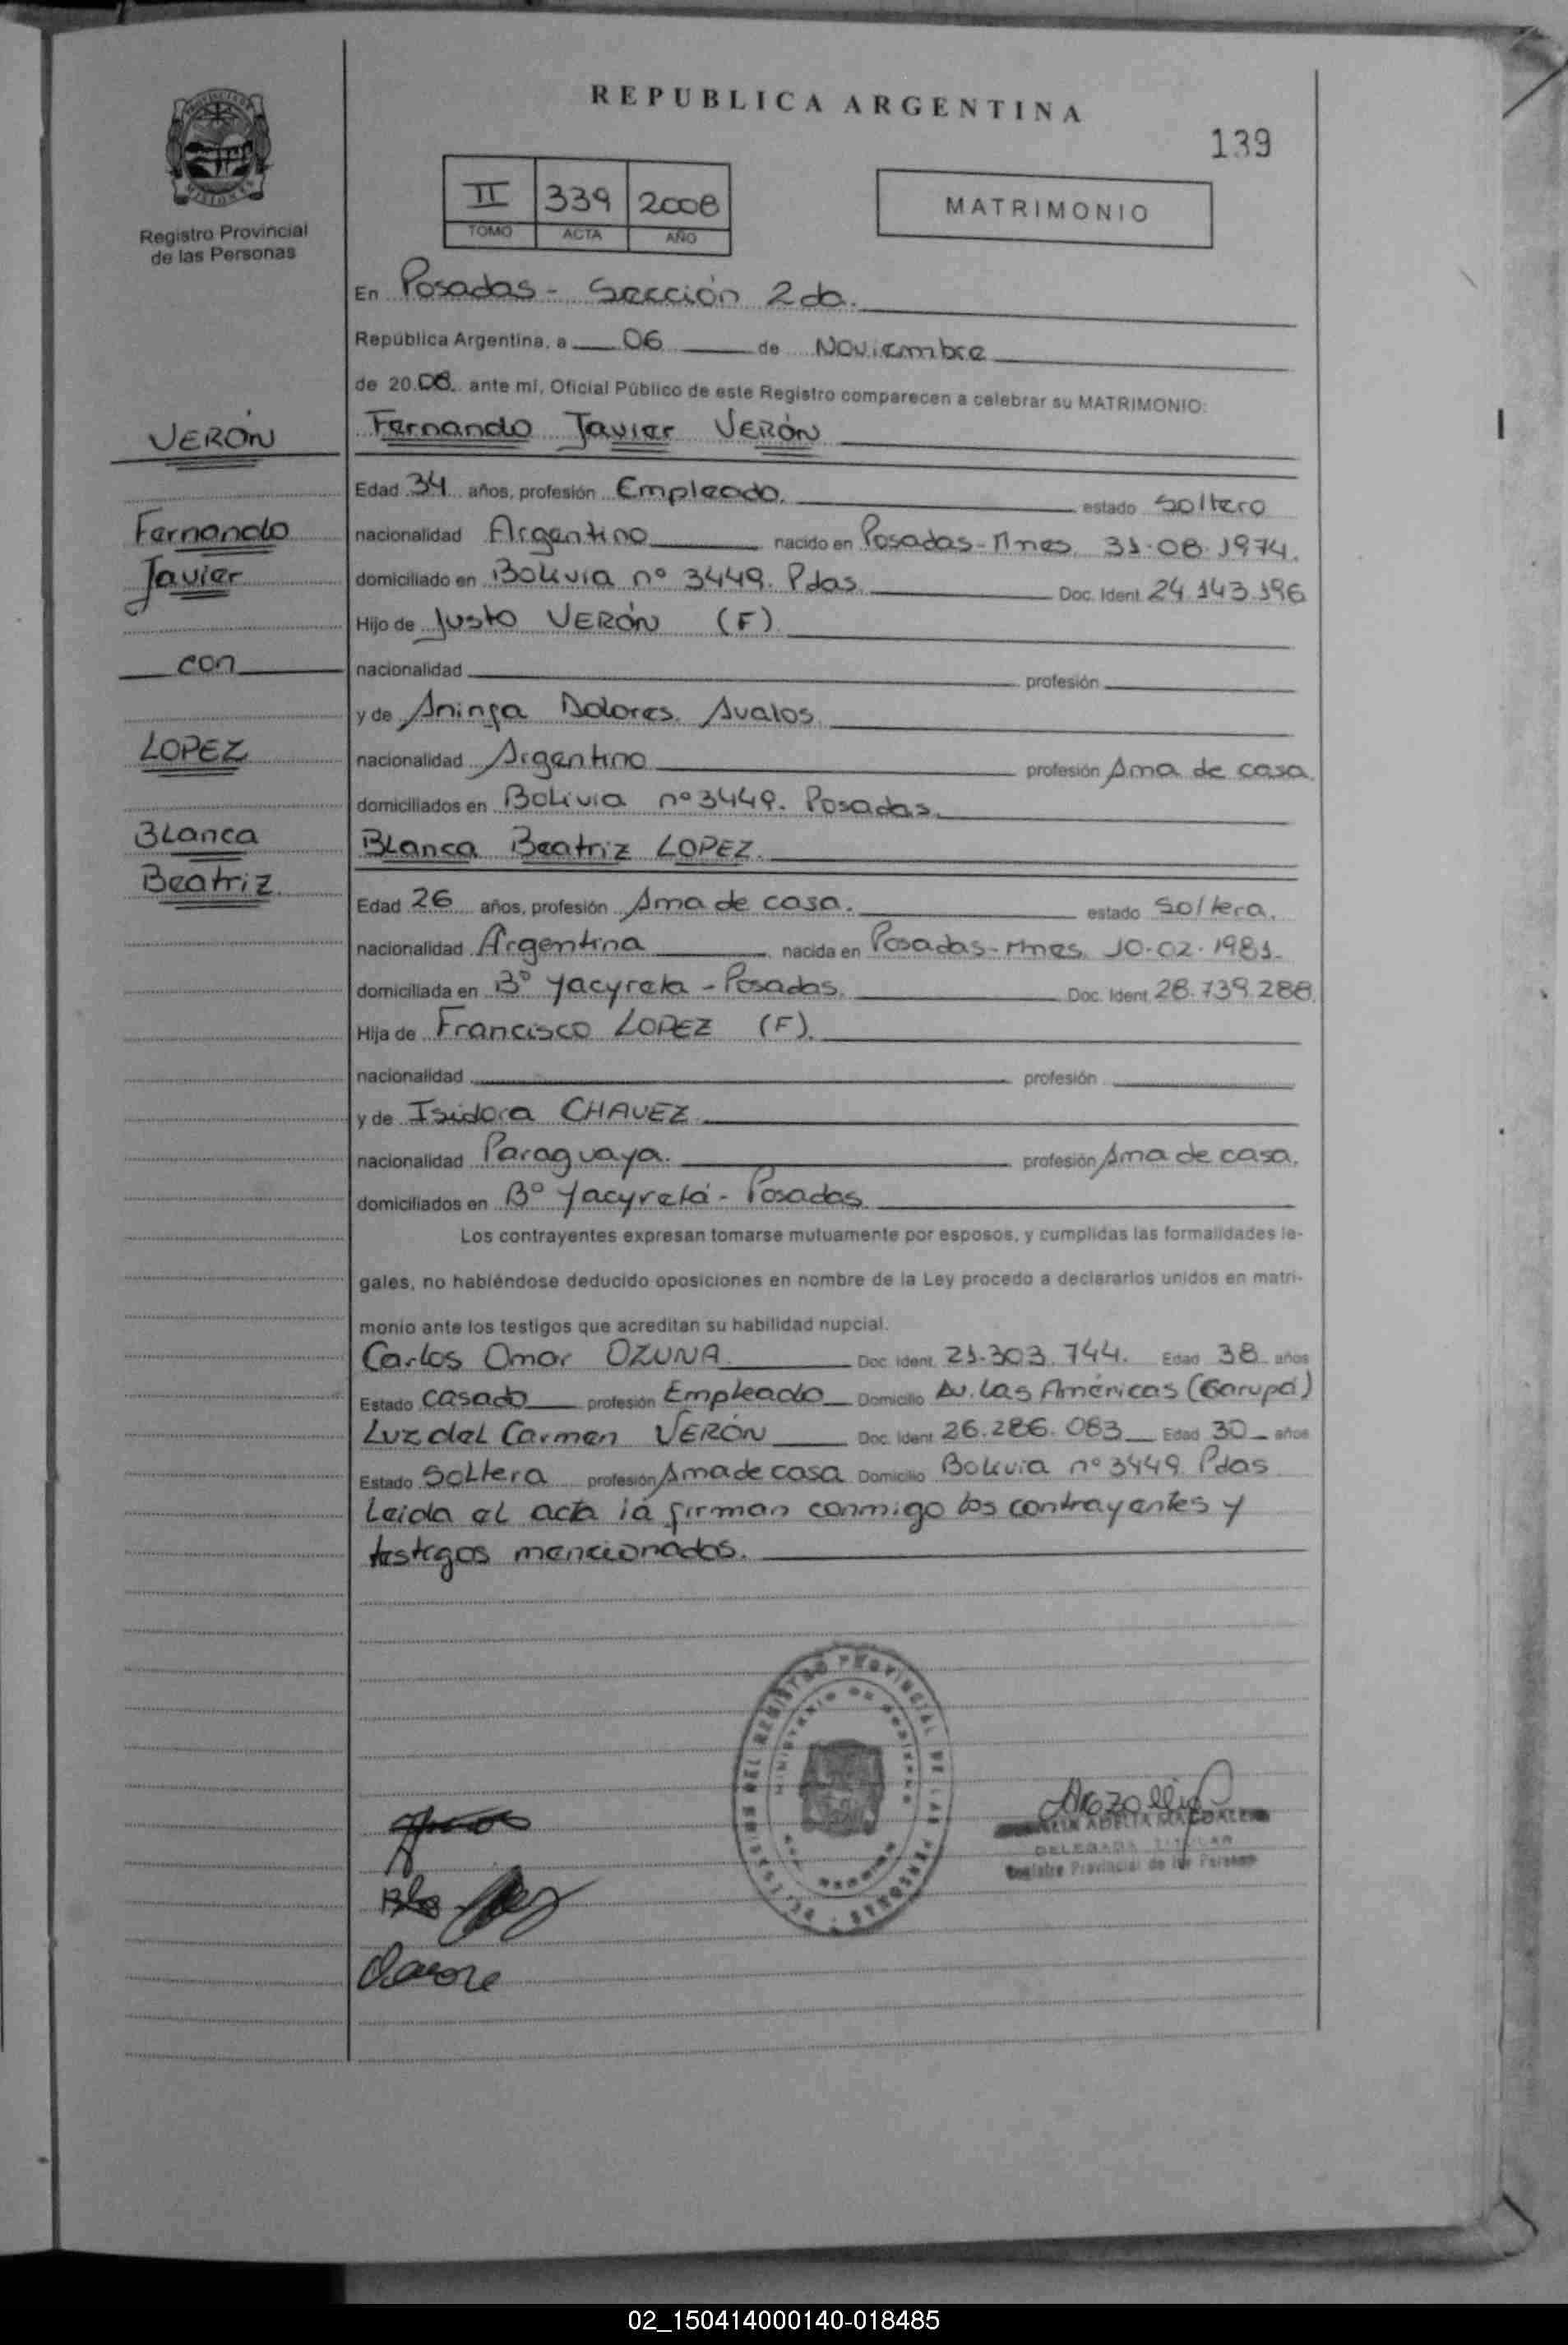 REPUBLICA ARGENTINA
139
Registro Provincial
de las Personas
II 339 2008
TOMO ACTA AÑO
MATRIMONIO
En Posadas - Sección 2da.
República Argentina, a 06 de Noviembre
de 2008. ante mí, Oficial Público de este Registro comparecen a celebrar su MATRIMONIO:
VERÓN
Fernando Javier VERÓN
Edad 34 años, profesión Empleado. estado Soltero
Fernando
nacionalidad Argentino nacido en Posadas-Mnes. 31.08.1974.
Javier
domiciliado en Bolivia nº 3449. Pdas. Doc. Ident. 24.143.196
Hijo de Justo VERÓN (F)
con
nacionalidad profesión
y de Aninfa Dolores Avalos
LOPEZ
nacionalidad Argentina profesión Ama de casa.
domiciliados en Bolivia nº 3449. Posadas.
Blanca
Blanca Beatriz LOPEZ.
Beatriz.
Edad 26 años, profesión Ama de casa. estado Soltera.
nacionalidad Argentina nacida en Posadas-Mnes. 10.02.1981.
domiciliada en Bº Yacyreta - Posadas. Doc. Ident. 28.739.288.
Hija de Francisco LOPEZ (F).
nacionalidad profesión
y de Isidora CHAVEZ
nacionalidad Paraguaya. profesión Ama de casa.
domiciliados en Bº Yacyretá - Posadas
Los contrayentes expresan tomarse mutuamente por esposos, y cumplidas las formalidades le-
gales, no habiéndose deducido oposiciones en nombre de la Ley procedo a declararlos unidos en matri-
monio ante los testigos que acreditan su habilidad nupcial.
Carlos Omar OZUNA Doc. Ident. 21.303.744. Edad 38 años
Estado Casado profesión Empleado Domicilio Av. Las Américas (Garupá)
Luz del Carmen VERÓN Doc. Ident. 26.286.083 Edad 30 años
Estado Soltera profesión Ama de casa Domicilio Bolivia nº 3449. Pdas
Leida el acta la firman conmigo los contrayentes y
testigos mencionados.
REGISTRO PROVINCIAL DE LAS PERSONAS
ADELIA MAGDALENA
DELEGADA TITULAR
Registro Provincial de las Personas
02_150414000140-018485